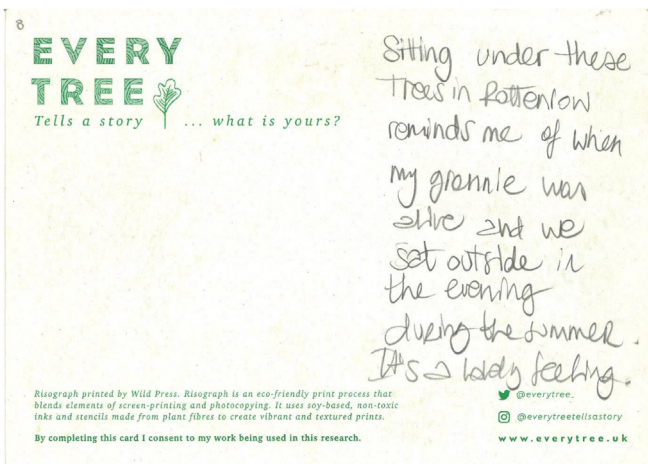 8
EVERY
TREE
Tells a story ... what is yours?
Sitting under these
trees in Rottenrow
reminds me of when
my grannie was
alive and we
sat outside in
the evening
during the summer.
It's a lovely feeling.
Risograph printed by Wild Press. Risograph is an eco-friendly print process that
blends elements of screen-printing and photocopying. It uses soy-based, non-toxic
inks and stencils made from plant fibres to create vibrant and textured prints.
By completing this card I consent to my work being used in this research.
@everytree_
@everytreetellsastory
www.everytree.uk